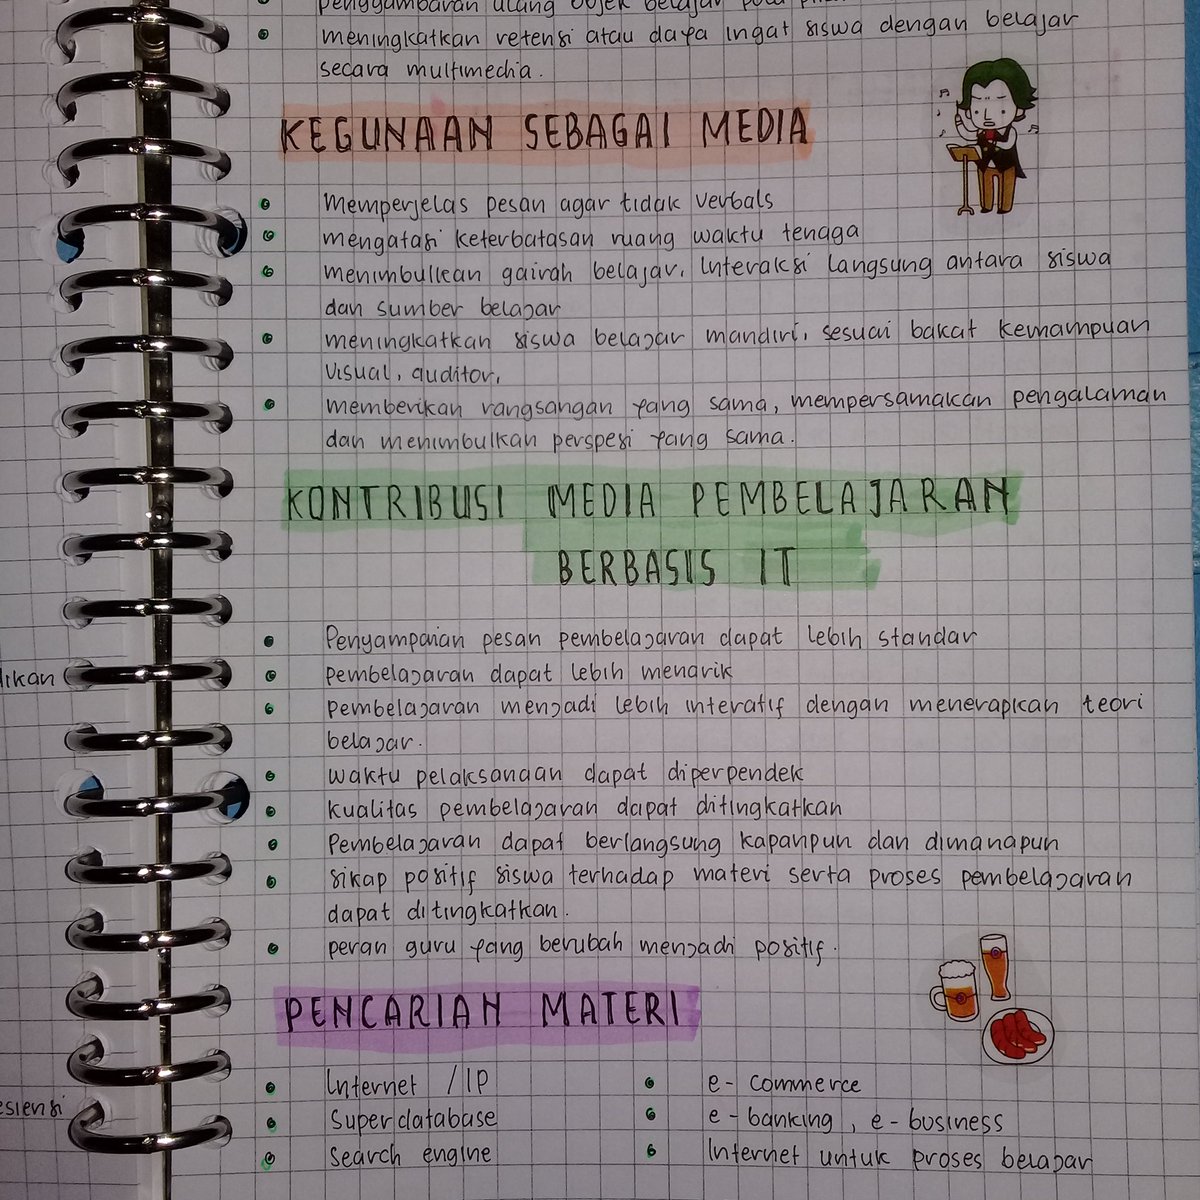 penggambaran ulang objek belajar
meningkatkan retensi atau daya ingat siswa dengan belajar
secara multimedia.
KEGUNAAN SEBAGAI MEDIA
memperjelas pesan agar tidak verbals
mengatasi keterbatasan ruang waktu tenaga
menimbulkan gairah belajar, Interaksi langsung antara siswa
dan sumber belajar
meningkatkan siswa belajar mandiri, sesuai bakat kemampuan
visual, auditori,
memberikan rangsangan yang sama, mempersamakan pengalaman
dan menimbulkan perspesi yang sama.
KONTRIBUSI MEDIA PEMBELAJARAN
BERBASIS IT
Penyampaian pesan pembelajaran dapat lebih standar
pembelajaran dapat lebih menarik
pembelajaran menjadi lebih interatif dengan menerapkan teori
belajar.
waktu pelaksanaan dapat diperpendek
kualitas pembelajaran dapat ditingkatkan
Pembelajaran dapat berlangsung kapanpun dan dimanapun
sikap positif siswa terhadap materi serta proses pembelajaran
dapat ditingkatkan.
peran guru yang berubah menjadi positif.
PENCARIAN MATERI
Internet / IP
Superdatabase
Search engine
e- commerce
e- banking, e- business
Internet untuk proses belajar